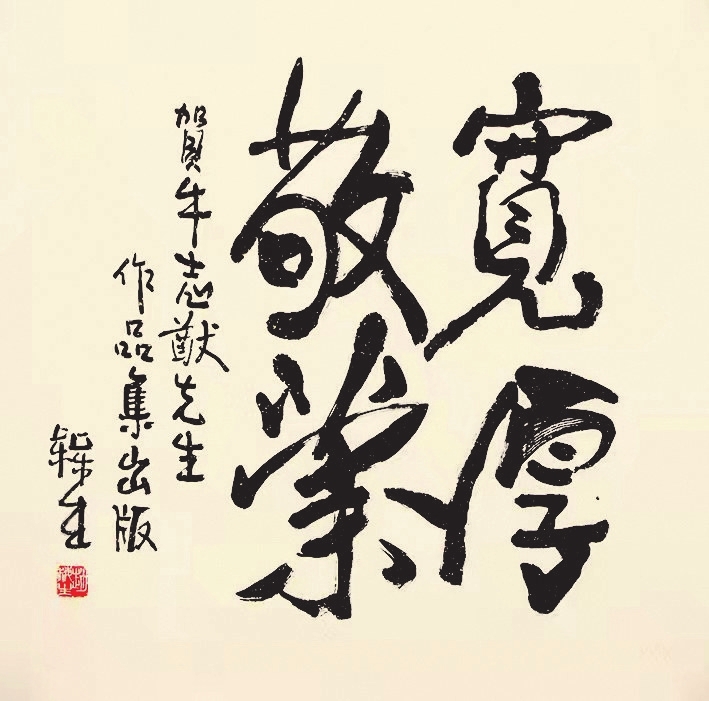 寬厚
敬業
賀牛志猷先生
作品集出版
生